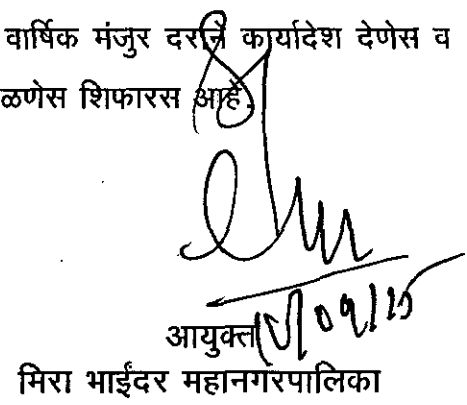 वार्षिक मंजुर दराने कार्यादेश देणेस व
ळणेस शिफारस आहे.
आयुक्त
मिरा भाईंदर महानगरपालिका